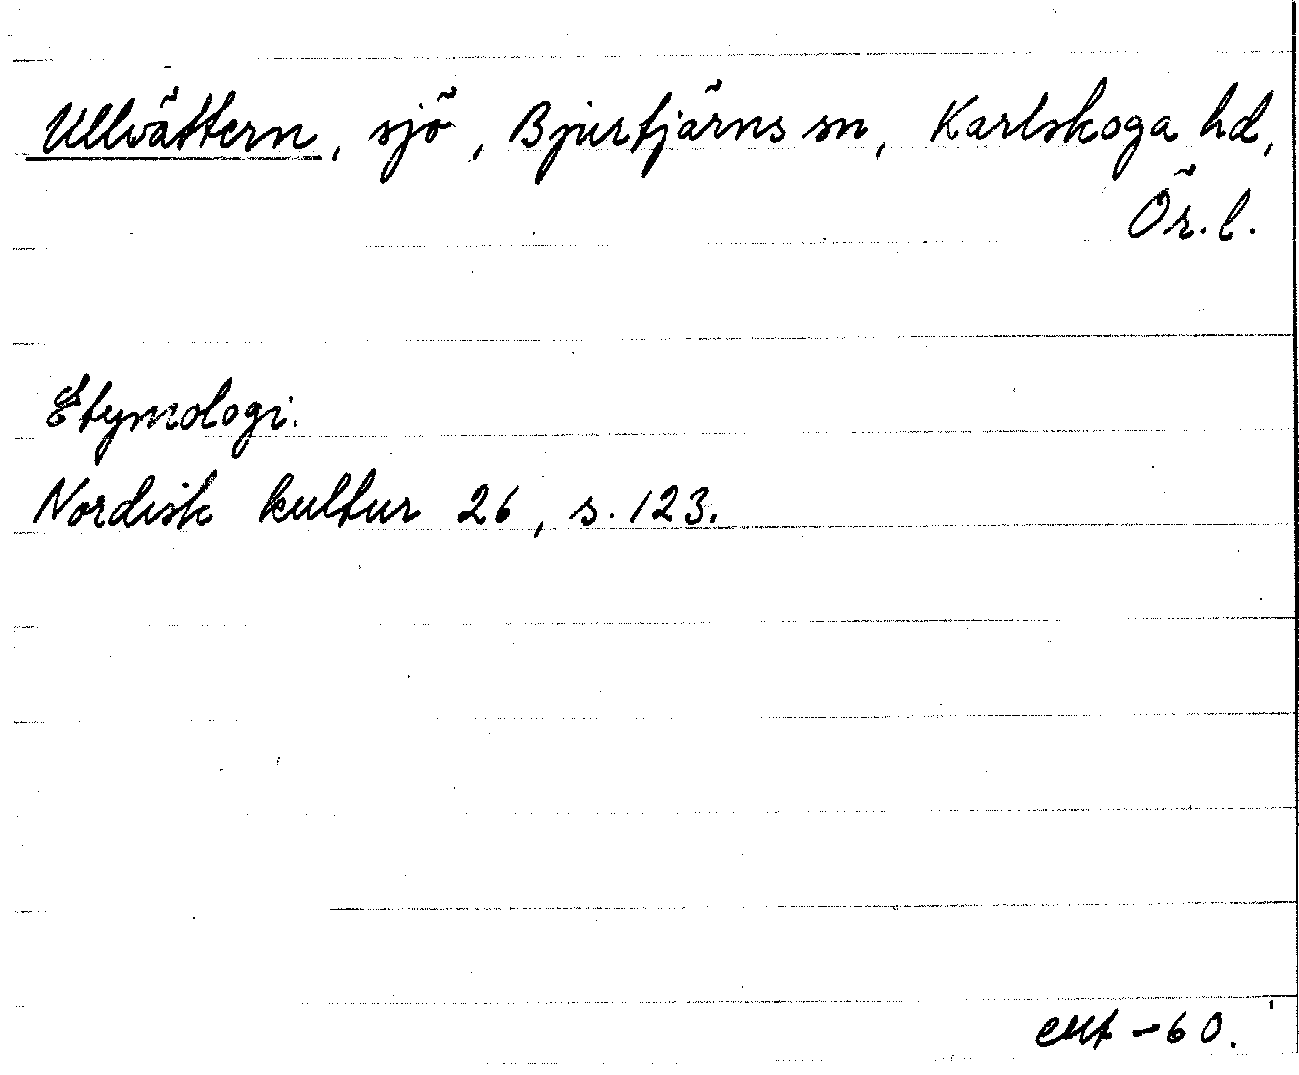 Ullvättern, sjö, Bjurtjärns sn, Karlskoga hd,
Ör. l.
Etymologi.
Nordisk kultur 26, s. 123.
-60.